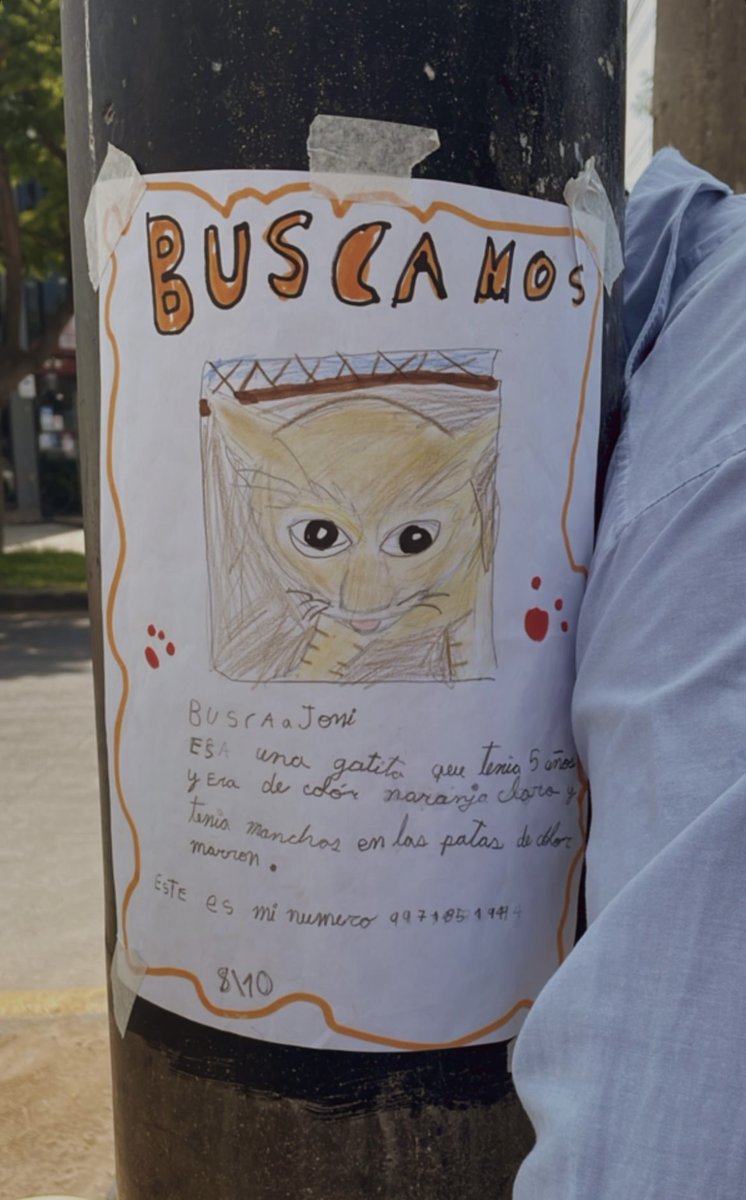 BUSCAMOS
BUSCA a Jomi
ERA una gatita que tenia 5 años
y Era de colór naranja claro y
tenia manchas en las patas de color
marron.
ESTE es mi numero
$\10